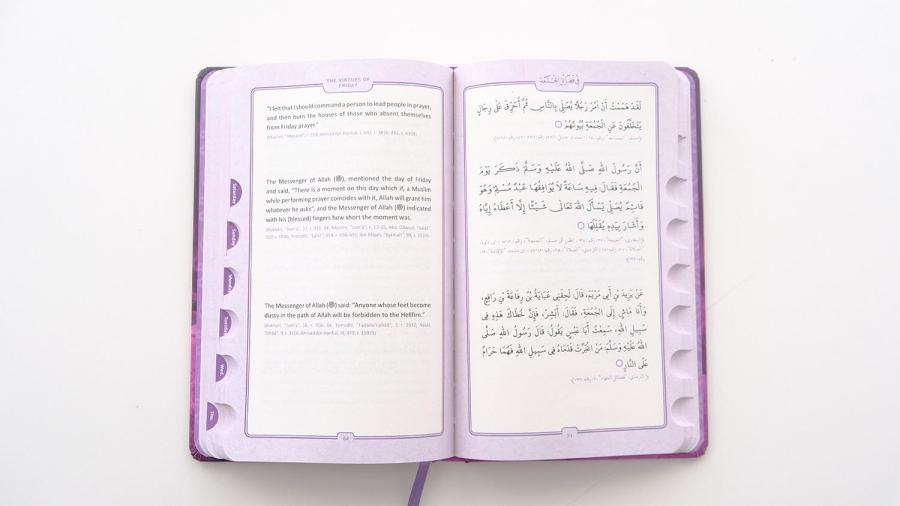 THE VIRTUES OF
FRIDAY
"I felt that I should command a person to lead people in prayer,
and then burn the houses of those who absent themselves
from Friday prayer."
The Messenger of Allah (ﷺ), mentioned the day of Friday
and said, "There is a moment on this day which if, a Muslim
while performing prayer coincides with it, Allah will grant him
whatever he asks", and the Messenger of Allah (ﷺ) indicated
with his [blessed] fingers how short the moment was.
The Messenger of Allah (ﷺ) said: "Anyone whose feet become
dusty in the path of Allah will be forbidden to the Hellfire."
Saturday
Sunday
Monday
Tuesday
Wed.
Thu.
لَقَدْ هَمَمْتُ أَنْ آمُرَ رَجُلًا يُصَلِّي بِالنَّاسِ ثُمَّ أُحَرِّقَ عَلَى رِجَالٍ
يَتَخَلَّفُونَ عَنِ الْجُمُعَةِ بُيُوتَهُمْ
أَنَّ رَسُولَ اللهِ صَلَّى اللهُ عَلَيْهِ وَسَلَّمَ ذَكَرَ يَوْمَ
الْجُمُعَةِ فَقَالَ: فِيهِ سَاعَةٌ لَا يُوَافِقُهَا عَبْدٌ مُسْلِمٌ وَهُوَ
قَائِمٌ يُصَلِّي يَسْأَلُ اللهَ تَعَالَى شَيْئًا إِلَّا أَعْطَاهُ إِيَّاهُ
وَأَشَارَ بِيَدِهِ يُقَلِّلُهَا
عَنْ يَزِيدَ بْنِ أَبِي مَرْيَمَ، قَالَ: لَحِقَنِي عَبَايَةُ بْنُ رِفَاعَةَ بْنِ رَافِعٍ،
وَأَنَا مَاشٍ إِلَى الْجُمُعَةِ، فَقَالَ: أَبْشِرْ، فَإِنَّ خُطَاكَ هَذِهِ فِي
سَبِيلِ اللهِ، سَمِعْتُ أَبَا عَبْسٍ يَقُولُ: قَالَ رَسُولُ اللهِ صَلَّى
اللهُ عَلَيْهِ وَسَلَّمَ: مَنِ اغْبَرَّتْ قَدَمَاهُ فِي سَبِيلِ اللهِ فَهُمَا حَرَامٌ
عَلَى النَّارِ